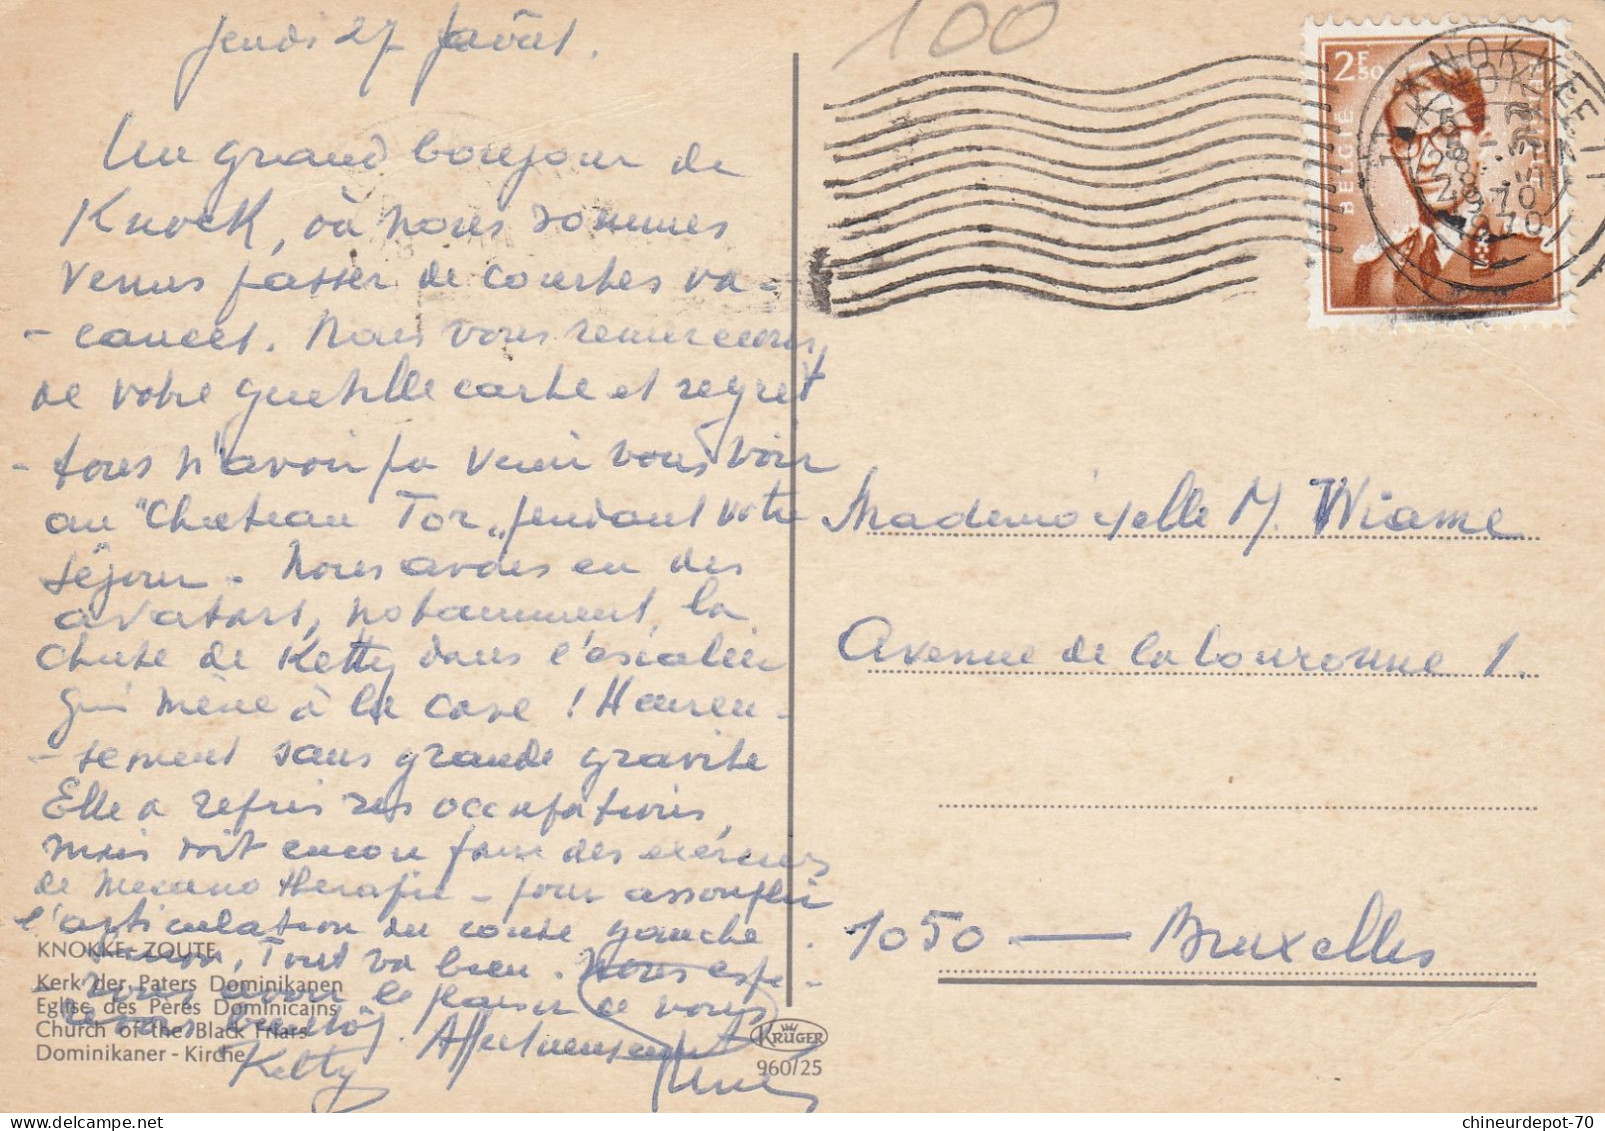 Jeudi 27 août.
100
Un grand bonjour de
Knock, où nous sommes
venus passer de courtes va-
- cances. Nous vous remercions
de votre gentille carte et regret
- tons n'avoir pu venir vous voir
au "Chateau Tor" pendant votre
séjour. Nous avons eu des
avatars, notamment, la
chute de Ketty dans l'escalier
qui mène à la cave ! Heureu-
- sement sans grande gravité
Elle a repris ses occupations,
mais doit encore faire des exercices
de mecano thérapie - pour assouplir
l'articulation du coude gauche.
Sinon, Tout va bien. Nous espé-
- rons avoir le plaisir de vous
revoir bientôt. Affectueusement
Ketty
KNOKKE-ZOUTE
Kerk der Paters Dominikanen
Eglise des Pères Dominicains
Church of the Black Friars
Dominikaner - Kirche
KRÜGER
960/25
2F50
BELGIË
KNOKKE
Mademoiselle M. Wiame
Avenue de la Couronne 1.
1050 — Bruxelles
chineurdepot-70